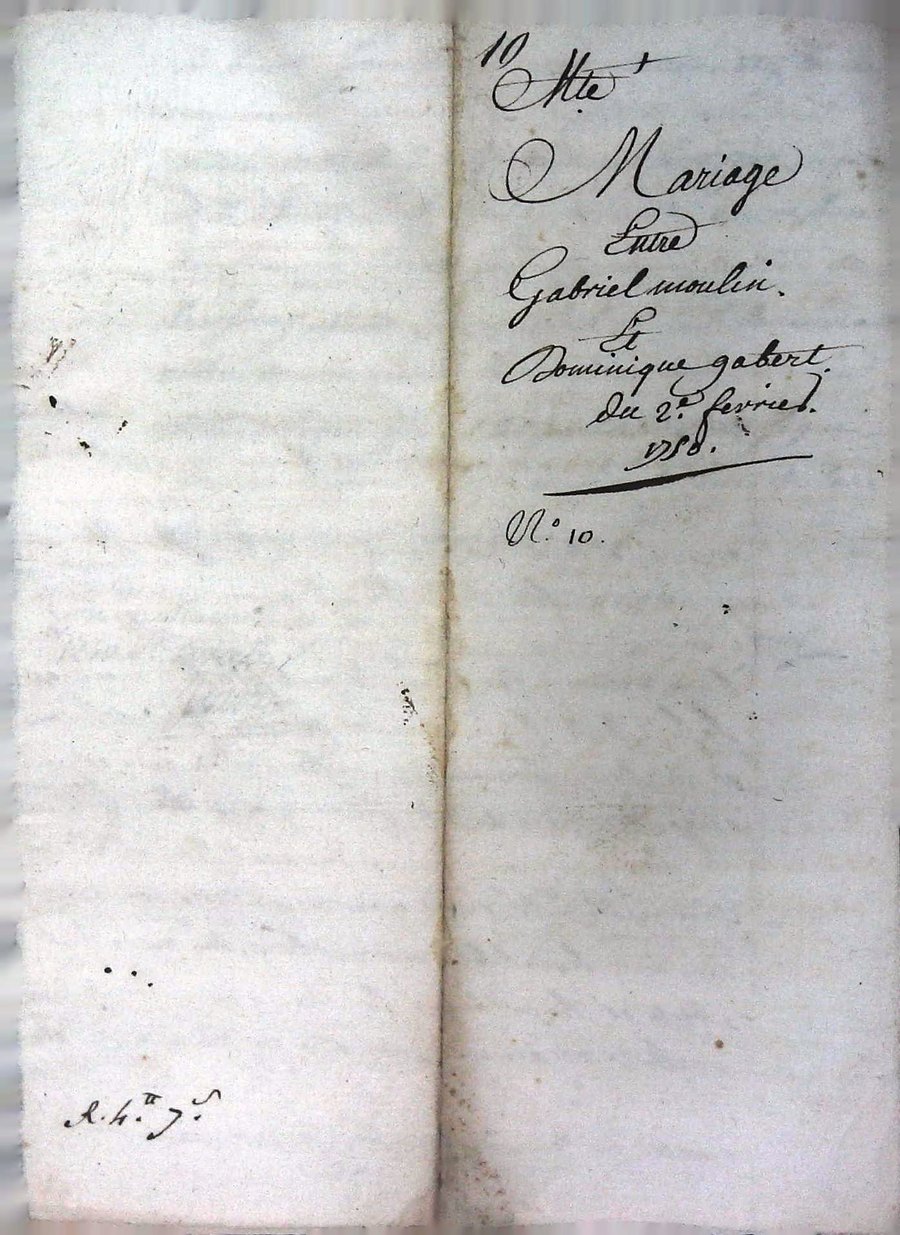 10
Mte
Mariage
Entre
Gabriel moulin.
Et
Dominique gabert.
du 2e. fevrier.
1750.
No. 10.
R. 4.tt 7.s